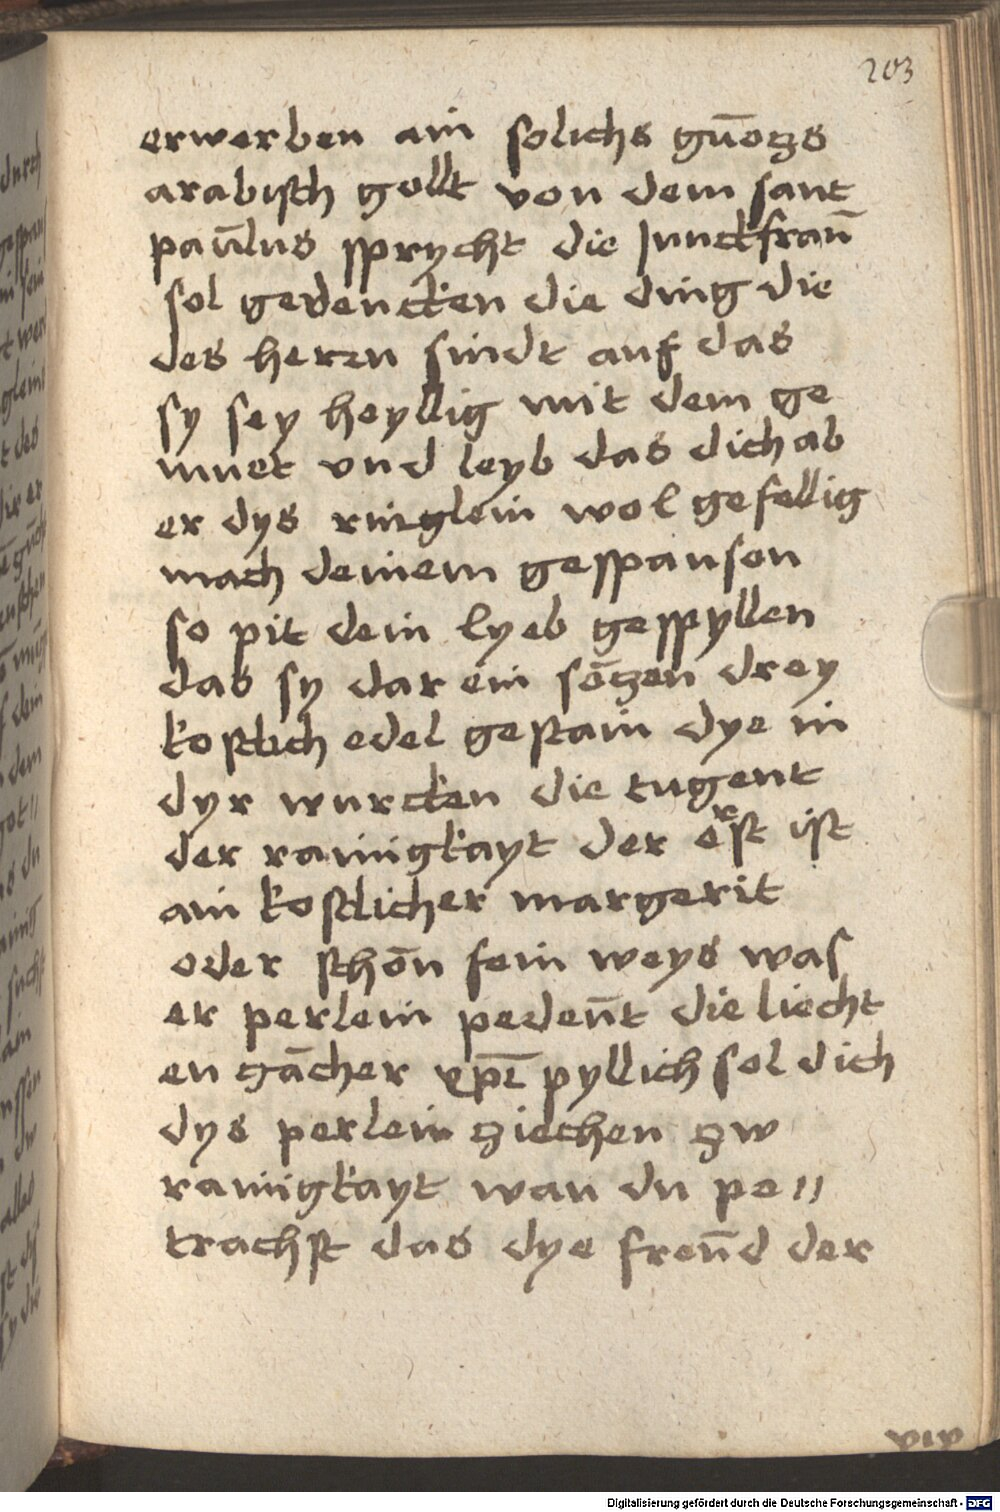 203
erwerben ain solichs gūotzs
arabisch gollt von dem sant
paūlus sprycht die Junckfraū
sol gedencken die ding die
des herrn sindt auf das
sy sey heyllig mit dem ge
muet vnd leyb das dich ab
er dys ringlein wol gefellig
mach deinem gesspansen
so pit dein lyeb gesspyllen
das sy dar ein sōtzen drey
kostlich edel gestain dye in
dyr wurcken die tugent
der rainigkayt der erst ist
ain kostlicher margerit
oder schōn fein weys was
er perlein pedeūt die liecht
en zācher xp̄i pyllich sol dich
dys perlein ziechen zw
rainigkayt wan du pe〃
trachst das dye freūd der
xix
Digitalisierung gefördert durch die Deutsche Forschungsgemeinschaft - DFG